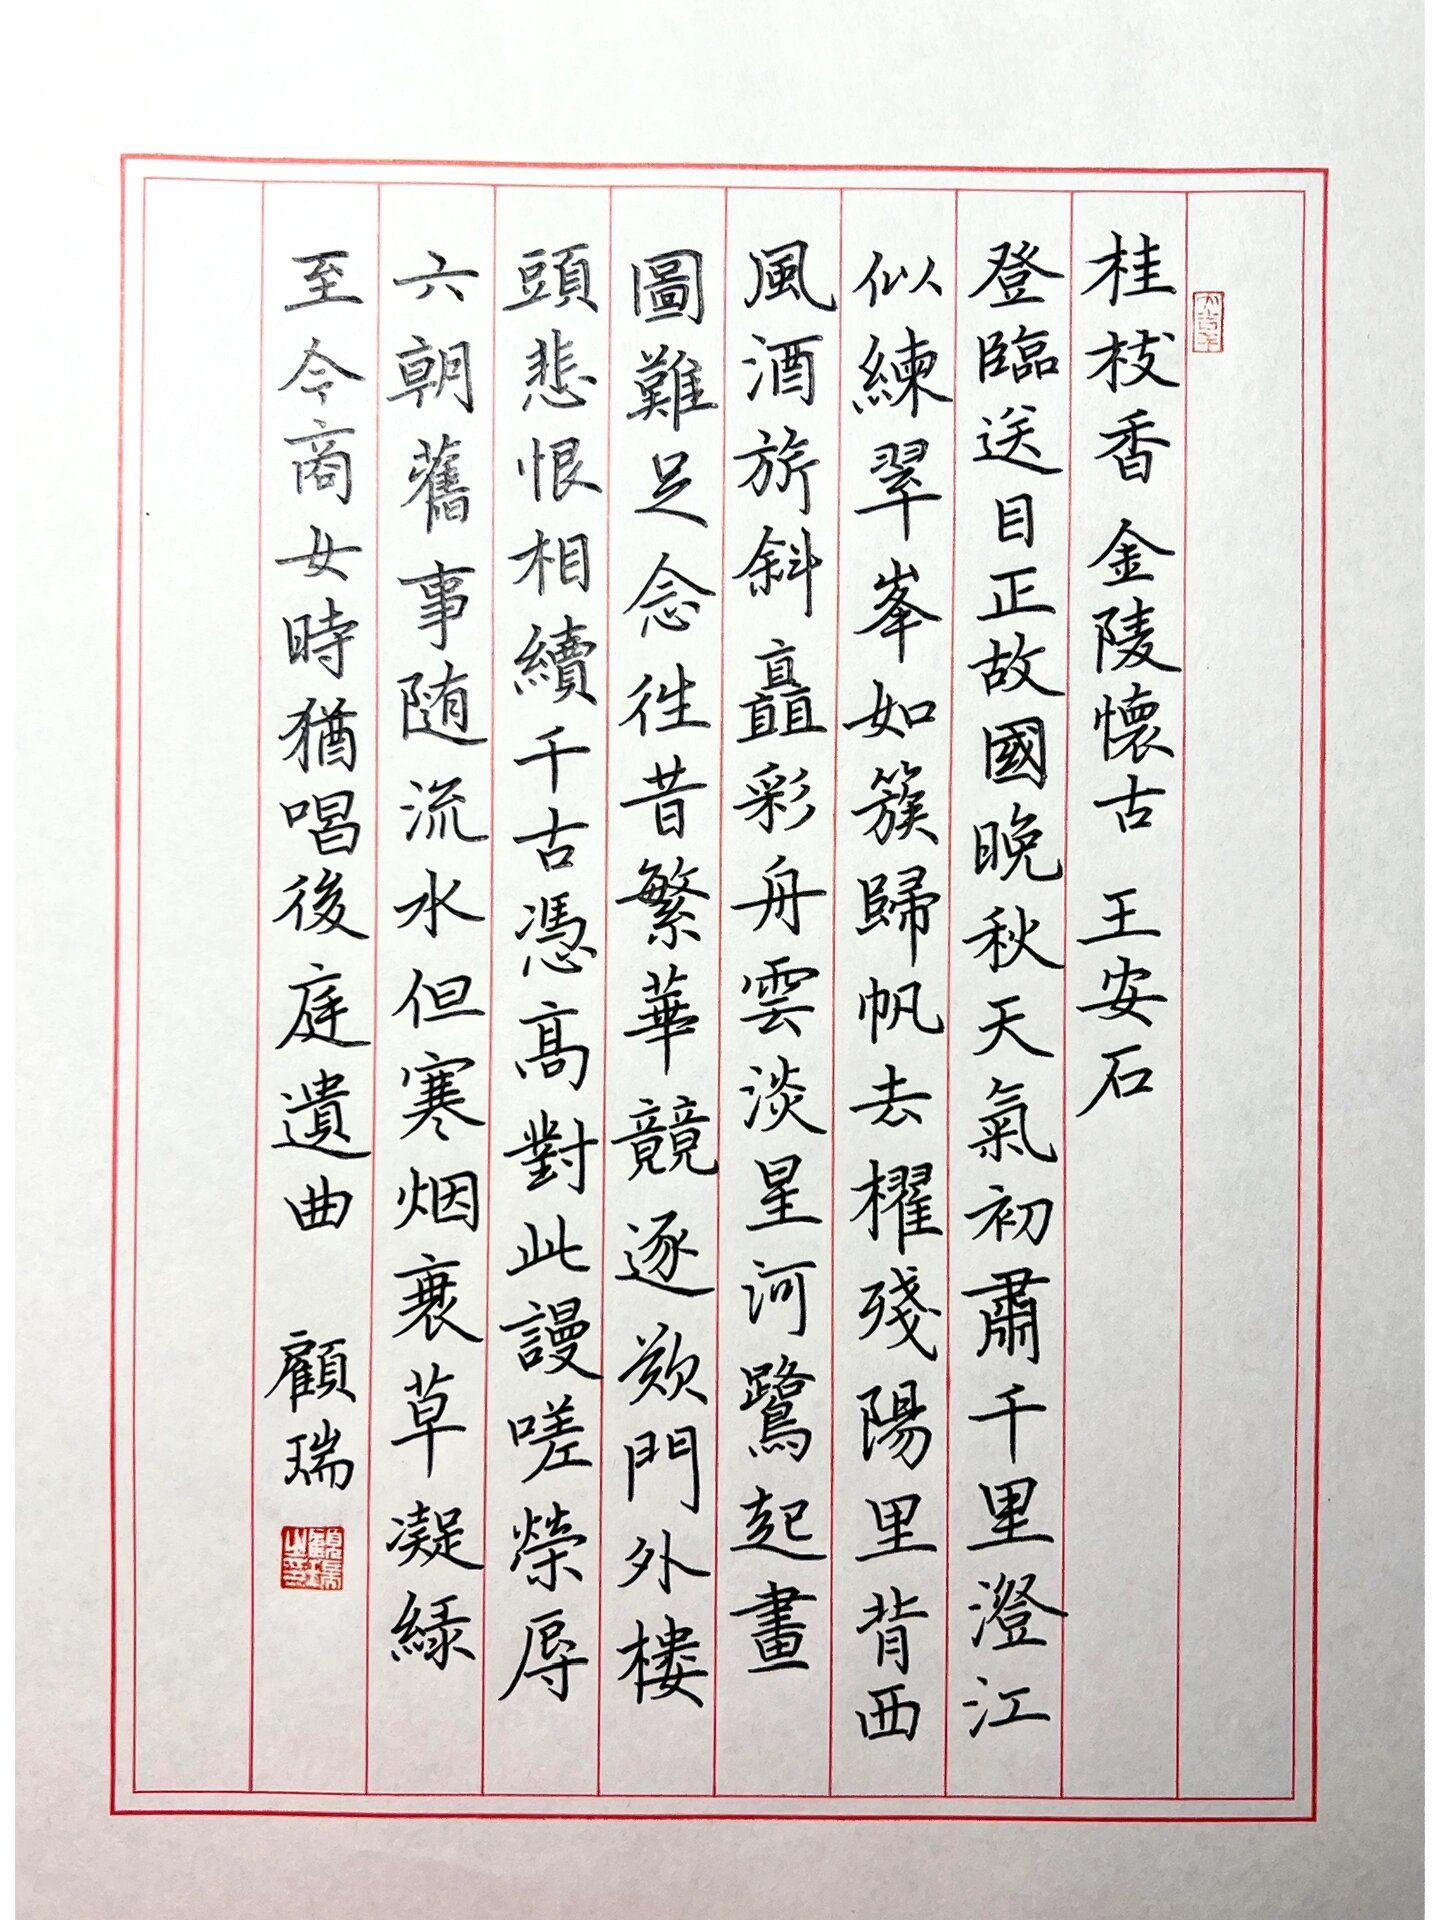 桂枝香 金陵懷古 王安石
登臨送目正故國晚秋天氣初肅千里澄江
似練翠峯如簇歸帆去櫂殘陽里背西
風酒旂斜矗彩舟雲淡星河鷺起畫
圖難足念往昔繁華競逐歎門外樓
頭悲恨相續千古憑高對此謾嗟榮辱
六朝舊事随流水但寒烟衰草凝綠
至今商女時猶唱後庭遺曲 顧瑞